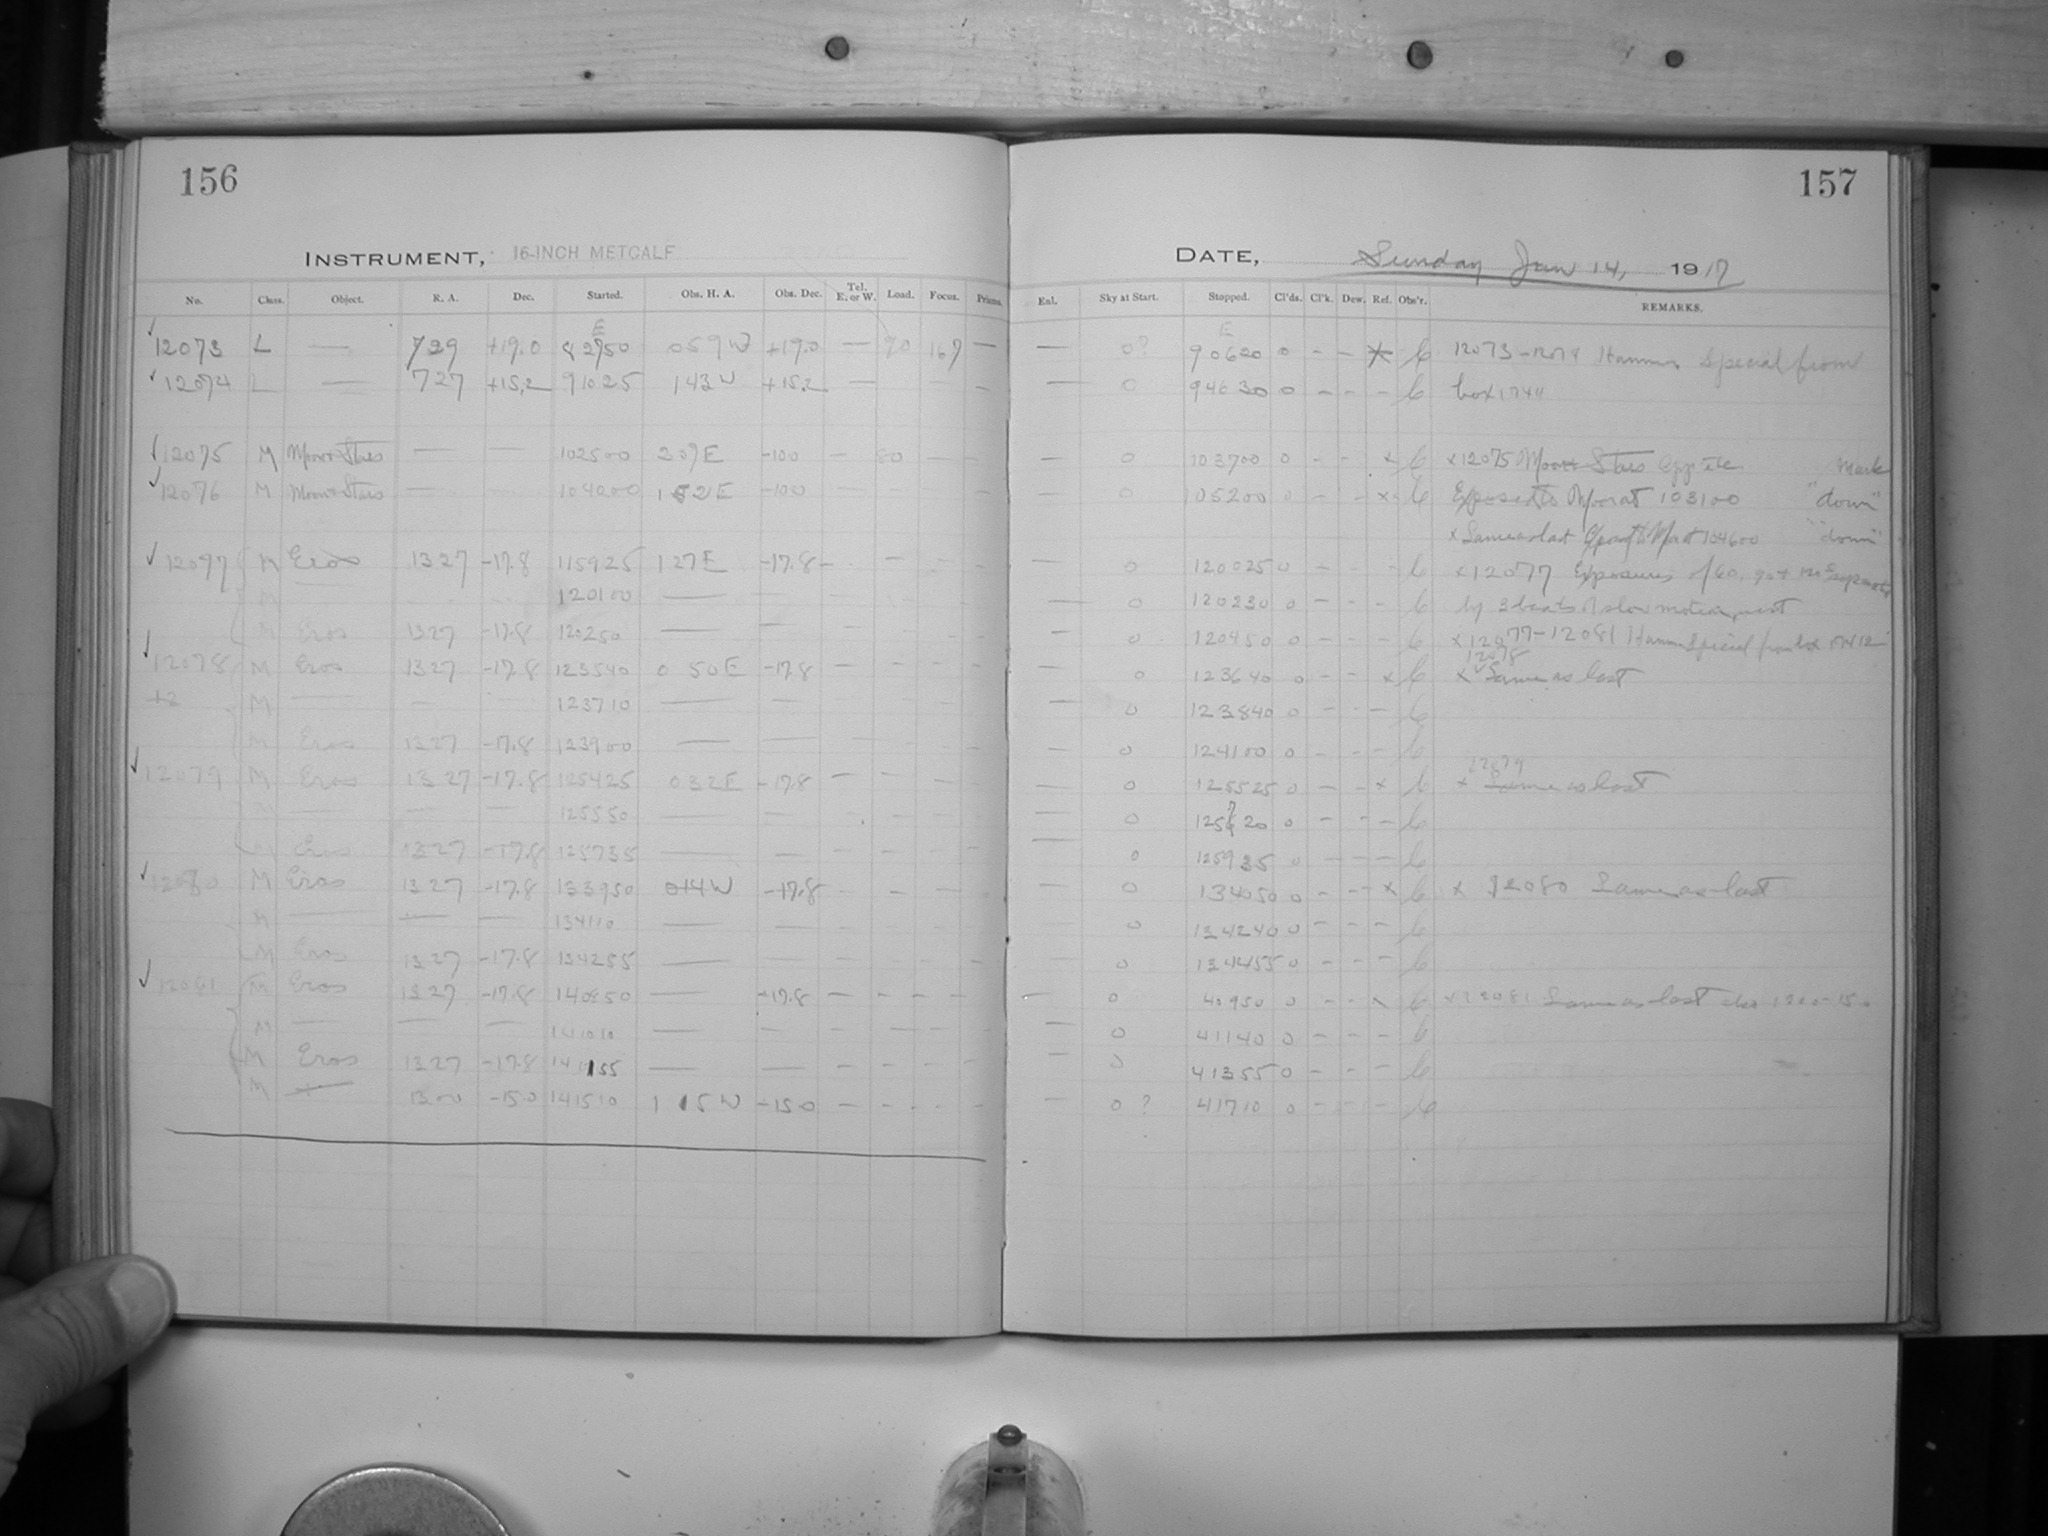 156
157
INSTRUMENT, 16-INCH METCALF
DATE, Sunday Jan 14, 1917
No. Class. Object. R. A. Dec. Started. Obs. H. A. Obs. Dec. Tel. E. or W. Load. Focus. Prisms. Enl. Sky at Start. Stopped. Cl'ds. Cl'k. Dew. Ref. Obs'r. REMARKS.
E E
12073 L — 729 +19.0 82950 059W +19.0 — 90 167 — — 0? 90620 0 - - 12073-12074 Hammer Special from
12074 L — 727 +15.2 91025 143W +15.2 — — — 0 94630 0 - - - box 1744
12075 M Moon+Stars — — 102500 207E -100 - 80 — 0 103700 0 - - x x 12075 Moon+Stars Mark
12076 M Moon+Stars — — 104000 152E -100 - — 0 105200 0 - - x Exposed to Moon at 103100 "down"
x Same as last 104600 "down"
12077 M Eros 1327 -17.8 115925 127E -17.8 - — 0 120025 0 - - - x 12077 Exposures of 60, 90 + 120s separated
M — 120100 — — 0 120230 0 - - - by 3 beats of slow motion
M Eros 1327 -17.8 120250 — — 0 120450 0 - - - x 12077-12081 Hammer Special from box
12078 M Eros 1327 -17.8 123540 0 50E -17.8 — — 0 123640 0 - - x x 12078 Same as last
+2 M — — — 123710 — — 0 123840 0 - - -
M Eros 1327 -17.8 123900 — — — 0 124100 0 - - -
12079 M Eros 1327 -17.8 125425 032E -17.8 — — 0 125525 0 - - x x 12079 Same as last
M — — — 125550 — — — 0 125720 0 - - -
M Eros 1327 -17.8 125735 — — — 0 125935 0 - - -
12080 M Eros 1327 -17.8 133950 014W -17.8 — — 0 134050 0 - - x x 12080 Same as last
M — — — 134110 — — 0 134240 0 - - -
M Eros 1327 -17.8 134255 — — 0 134455 0 - - -
12081 M Eros 1327 -17.8 140850 — -17.8 - - - - — 0 40950 0 - - x x 12081 Same as last also 1300-15.0
M — — — 141010 — — — 0 41140 0 - - -
M Eros 1327 -17.8 141155 — — — 0 41355 0 - - -
M 1300 -15.0 141510 1 15W -15.0 - - — 0? 41710 0 - - -